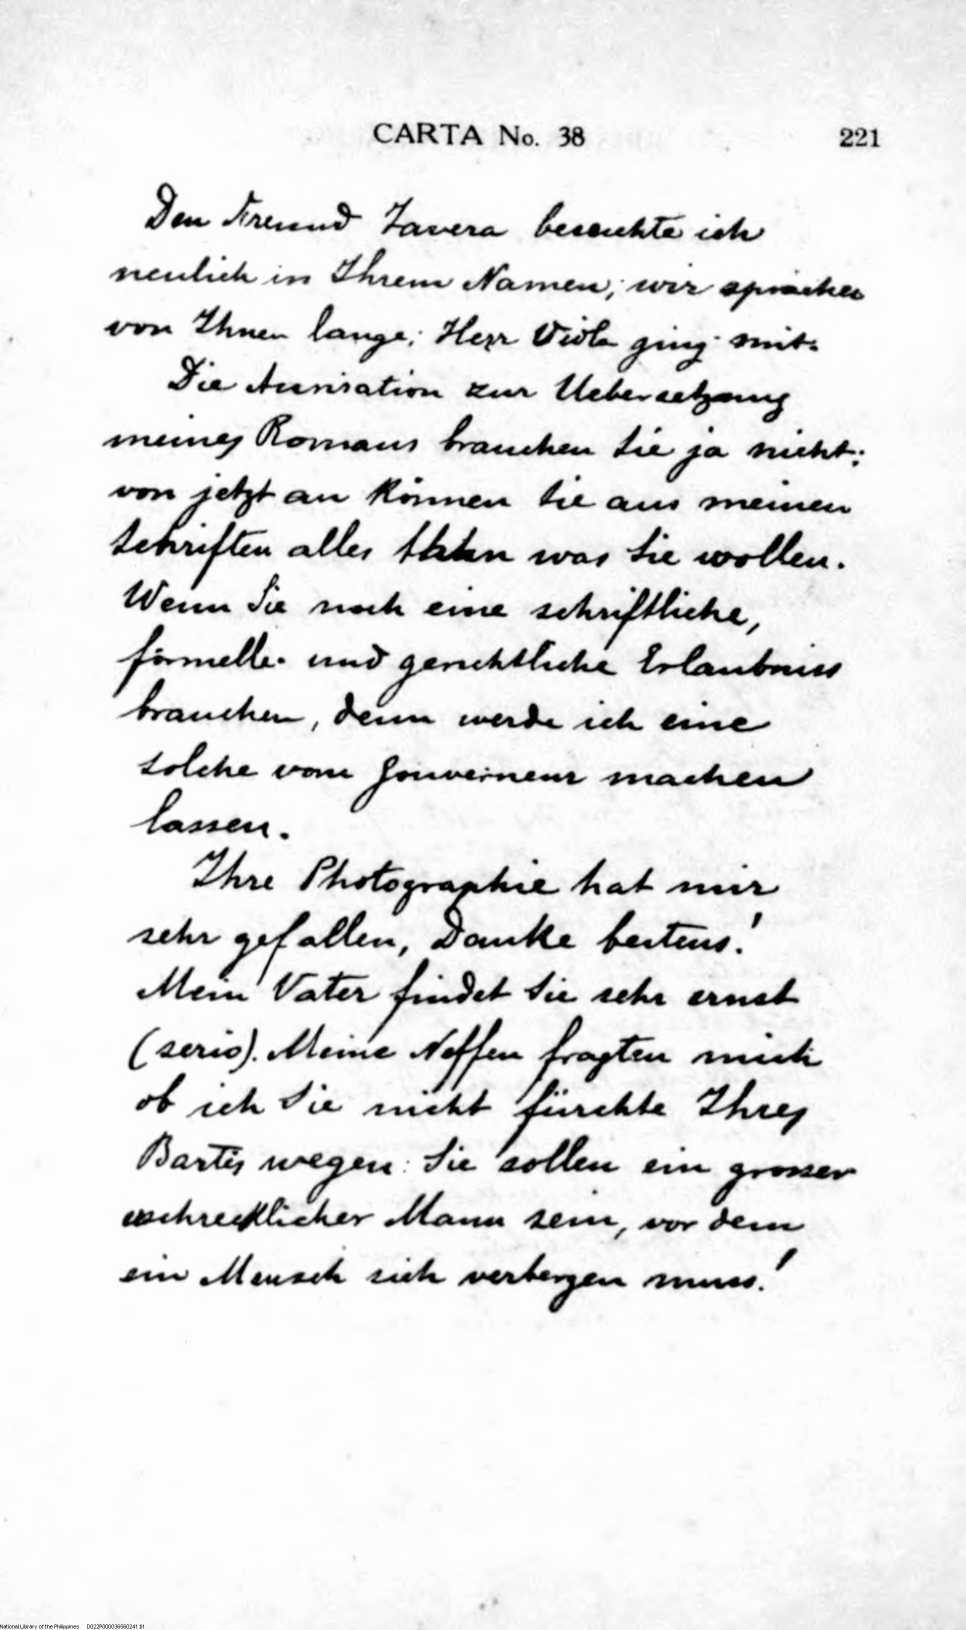 CARTA No. 38 221
Den Freund Tavera besuchte ich
neulich in Ihrem Namen; wir sprachen
von Ihnen lange; Herr Viola ging mit.
Die zur Uebersetzung
meines Romans brauchen Sie ja nicht;
von jetzt an können Sie aus meinen
Schriften alles was Sie wollen.
Wenn Sie noch eine schriftliche,
förmelle und gerichtliche Erlaubniss
brauchen, denn werde ich eine
solche vom Gouverneur machen
lassen.
Ihre Photographie hat mir
sehr gefallen, Danke bestens!
Mein Vater findet Sie sehr ernst
(serio). Meine Neffen fragten mich
ob ich Sie nicht fürchte Ihres
Bartes wegen: Sie sollen ein grosser
erschrecklicher Mann sein, vor dem
ein Mensch sich verbergen muss!
National Library of the Philippines